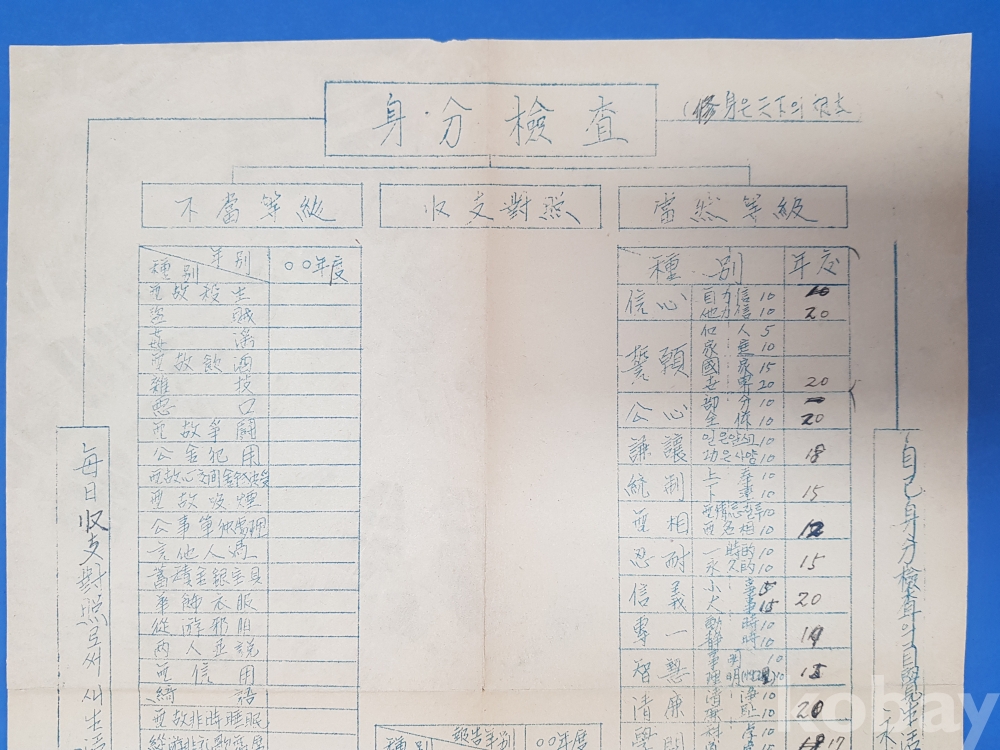 身分檢査
(修身은 天下의
不當等級
收支對照
當然等級
年別
種別
○○年度
無故殺生
盜賊
姦淫
無故飮酒
雜技
惡口
無故爭鬪
公金犯用
無故吸煙
公事單獨處理
言他人過
蓄積金銀寶貝
華飾衣服
從遊邪朋
兩人並說
無信用
綺語
無故非時睡眠
種別
年度
信心
自力信 10
他力信 10
20
誓願
個人 5
家庭 10
國家 15
世界 20
20
公心
部分 10
全体 10
20
謙讓
18
統制
上奉 10
下奉 10
15
無相
12
忍耐
一時的 10
永久的 10
15
信義
小事 5
大事 15
20
專一
動時 10
靜時 10
19
智慧
清廉
20
每日收支對照로써 새生活
自己身分檢査의 自覺
種別
報告年別
○○年度
kobay